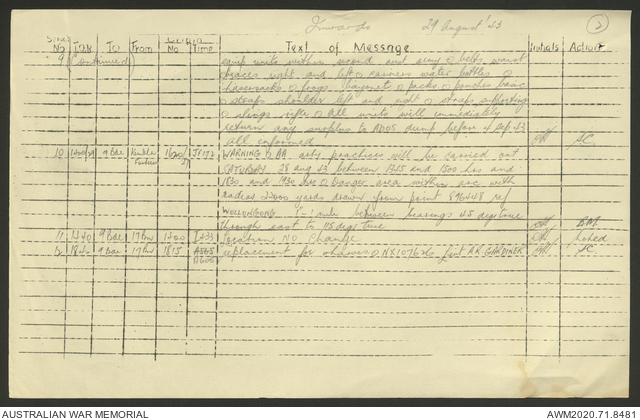 Inwards 29 August '43 2
Serial No T.O.R To From No Time Text of Message Initials Action
9 (Continued) equip units within and army o belts waist
braces right and left o carriers water bottles o
haversacks o frogs bayonet o packs o pouches basic
o straps shoulder left and right o straps supporting
o slings rifle o all units will immediately
return any surplus to ADOS dump before 4 Sep 43
all informed
10 9 Bde WARNING O AA arty practices will be carried out
SATURDAY 28 aug 43 between 1345 and 1500 hrs and
1830 and 1930 hrs o danger area within arc with
radius 22000 yards drawn from point 896448 ref
WOLLONGONG 1-1 mile between bearings 45 degs true
through east to 115 degs true BM
11 9 Bde 17 Bn 1400 location NO Change Noted
12 9 Bde 17 Bn 1815 replacement for o NX107626 Lieut A.R. GARDINER
AUSTRALIAN WAR MEMORIAL AWM2020.71.8481